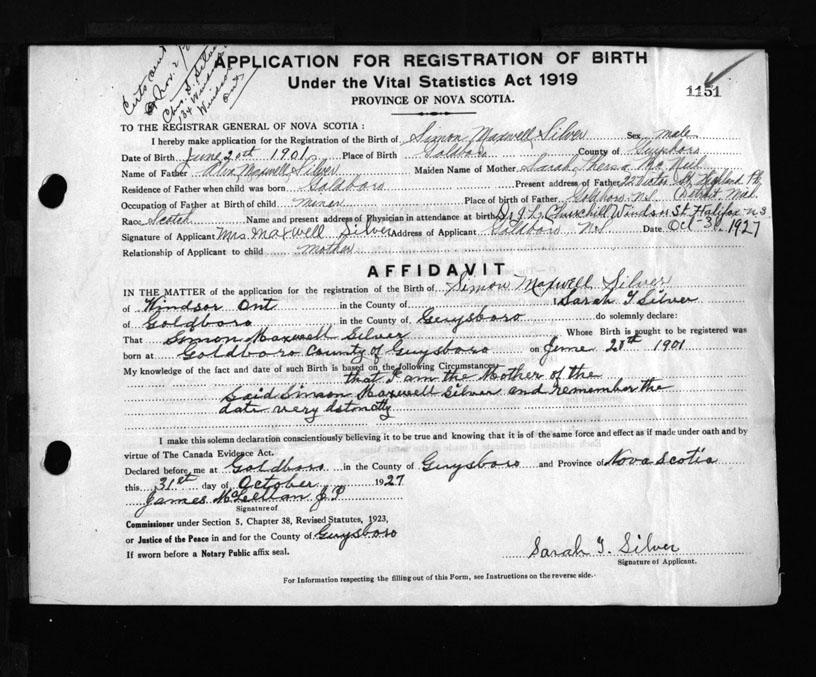 Certs sent
Nov. 2/2
Chas. S. Silver
134 Windsor
Windsor
Ont
APPLICATION FOR REGISTRATION OF BIRTH
Under the Vital Statistics Act 1919
PROVINCE OF NOVA SCOTIA.
1151
TO THE REGISTRAR GENERAL OF NOVA SCOTIA :
I hereby make application for the Registration of the Birth of Simon Maxwell Silver Sex male
Date of Birth June 20th 1901 Place of Birth Goldboro County of Guysboro
Name of Father Maxwell Silver Maiden Name of Mother Sarah Theresa McNeil
Residence of Father when child was born Goldboro Present address of Father 22 Victor St, Highland Pk,
Occupation of Father at Birth of child miner Place of birth of Father Goldboro N.S.
Race Scotch Name and present address of Physician in attendance at birth Dr J. L. Churchill Windsor St. Halifax N S
Signature of Applicant Mrs Maxwell Silver Address of Applicant Goldboro N.S Date Oct 31 1927
Relationship of Applicant to child mother
AFFIDAVIT
IN THE MATTER of the application for the registration of the Birth of Simon Maxwell Silver
of Windsor Ont in the County of I Sarah T Silver
of Goldboro in the County of Guysboro do solemnly declare:
That Simon Maxwell Silver Whose Birth is sought to be registered was
born at Goldboro County of Guysboro on June 20th 1901
My knowledge of the fact and date of such Birth is based on the following Circumstances
that I am the Mother of the
Said Simon Maxwell Silver and remember the
date very distinctly
I make this solemn declaration conscientiously believing it to be true and knowing that it is of the same force and effect as if made under oath and by
virtue of The Canada Evidence Act.
Declared before me at Goldboro in the County of Guysboro and Province of Nova Scotia
this 31st day of October 1927
James McLellan J.P
Signature of
Commissioner under Section 5, Chapter 38, Revised Statutes, 1923,
or Justice of the Peace in and for the County of Guysboro
If sworn before a Notary Public affix seal.
Sarah T. Silver
Signature of Applicant.
For Information respecting the filling out of this Form, see Instructions on the reverse side.